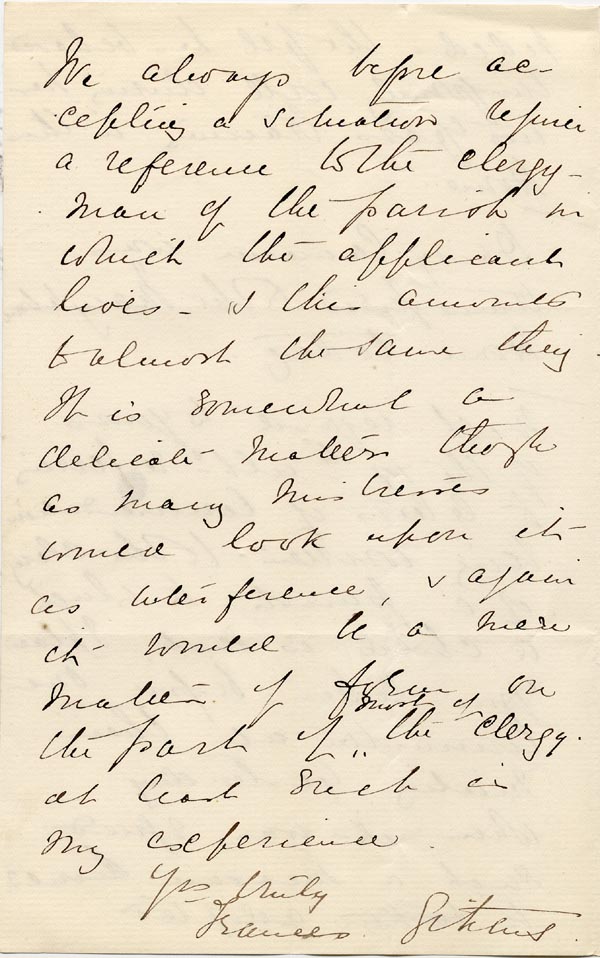 We always before ac-
cepting a situation require
a reference to the clergy-
man of the parish in
which the applicant
lives - & this amounts
to almost the same thing.
It is somewhat a
delicate matter though
as many mistresses
would look upon it
as interference, & again
it would be a mere
matter of form on
the part of most of the clergy.
at least such is
my experience.
Yrs truly
Frances